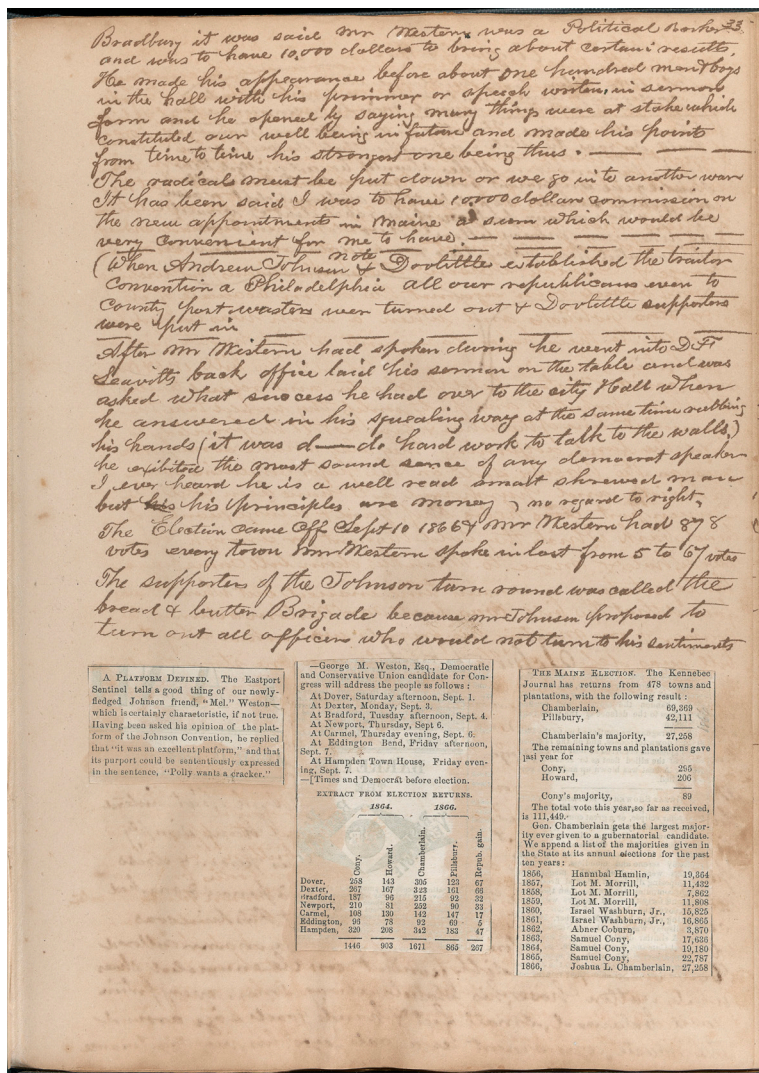 33
Bradbury it was said Mr Western was a Political Worker
and was to have 10,000 dollars to bring about certain results.
He made his appearance before about one hundred men & boys
in the hall with his primmer or speech written, in sermon
form and he opened by saying many things were at stake which
constituted our well being in future and made his points
from time to time his strongest one being thus. — — —
The radicals must be put down or we go in to another war
It has been said I was to have 10,000 dollar commission on
the new appointments in Maine a sum which would be
very convenient for me to have. — — — — — —
note
(When Andrew Johnson & Doolittle established the traitor
Convention a Philadelphia all our republicans even to
County post masters were turned out & Doolittle supporters
were put in
After Mr Western had spoken during he went into D F
Leavitts back office laid his sermon on the table and was
asked what success he had over to the city Hall when
he answered in his squealing way at the same time rubbing
his hands (it was d——do hard work to talk to the walls,)
he exibited the most sound sence of any democrat speaker
I ever heard he is a well read smart shrewed man
but his his principles are money, no regard to right,
The Election came off Sept 10 1866 & Mr Western had 878
votes every town Mr Western spoke in lost from 5 to 67 votes
The supporters of the Johnson turn round was called the
bread & butter Brigade because Mr Johnson proposed to
turn out all officers who would not turn to his sentiments
A PLATFORM DEFINED. The Eastport
Sentinel tells a good thing of our newly-
fledged Johnson friend, "Mel." Weston—
which is certainly characteristic, if not true.
Having been asked his opinion of the plat-
form of the Johnson Convention, he replied
that "it was an excellent platform," and that
its purport could be sententiously expressed
in the sentence, "Polly wants a cracker."
—George M. Weston, Esq., Democratic
and Conservative Union candidate for Con-
gress will address the people as follows:
At Dover, Saturday afternoon, Sept. 1.
At Dexter, Monday, Sept. 3.
At Bradford, Tuesday afternoon, Sept. 4.
At Newport, Thursday, Sept 6.
At Carmel, Thursday evening, Sept. 6.
At Eddington Bend, Friday afternoon,
Sept. 7.
At Hampden Town House, Friday even-
ing, Sept. 7.
—[Times and Democrat before election.
EXTRACT FROM ELECTION RETURNS.
1864. 1866.
Cony. Howard. Chamberlain. Pillsbury. Repub. gain.
Dover, 258 143 305 123 67
Dexter, 267 167 323 161 66
Bradford. 187 96 215 92 32
Newport, 210 81 252 90 33
Carmel, 108 130 142 147 17
Eddington, 96 78 92 69 5
Hampden, 320 208 342 183 47
1446 903 1671 865 267
THE MAINE ELECTION. The Kennebec
Journal has returns from 478 towns and
plantations, with the following result:
Chamberlain, 69,369
Pillsbury, 42,111
Chamberlain's majority, 27,258
The remaining towns and plantations gave
last year for
Cony, 295
Howard, 206
Cony's majority, 89
The total vote this year, so far as received,
is 111,449.
Gen. Chamberlain gets the largest major-
ity ever given to a gubernatorial candidate.
We append a list of the majorities given in
the State at its annual elections for the past
ten years:
1856, Hannibal Hamlin, 19,364
1857, Lot M. Morrill, 11,432
1858, Lot M. Morrill, 7,862
1859, Lot M. Morrill, 11,808
1860, Israel Washburn, Jr., 15,825
1861, Israel Washburn, Jr., 16,865
1862, Abner Coburn, 3,870
1863, Samuel Cony, 17,636
1864, Samuel Cony, 19,180
1865, Samuel Cony, 22,787
1866, Joshua L. Chamberlain, 27,258